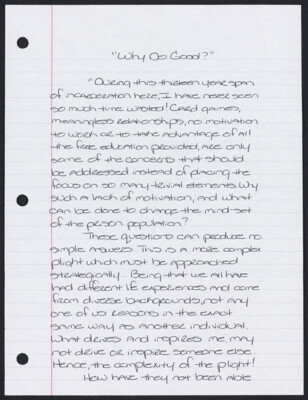 "Why Do Good?"
"During this thirteen year span
of incarceration here, I have never seen
so much time wasted! Card games,
meaningless relationships, no motivation
to work or to take advantage of all
the free education provided, are only
some of the concerns that should
be addressed instead of placing the
focus on so many trivial elements. Why
such a lack of motivation, and what
can be done to change the mind-set
of the prison population?
These questions can produce no
simple answers. This is a more complex
plight which must be approached
strategically. Being that we all have
had different life experiences and come
from diverse backgrounds, not any
one of us reasons in the exact
same way as another individual.
What drives and inspires me, may
not drive or inspire someone else.
Hence, the complexity of the plight!
How have they not been able